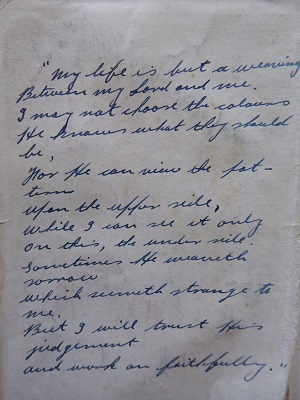 "My life is but a weaving
Between my Lord and me.
I may not choose the colours
He knows what they should
be,
For He can view the pat-
tern
Upon the upper side,
While I can see it only
On this, the under side.
Sometimes He weaveth
sorrow
Which seemeth strange to
me.
But I will trust His
judgement
and work on faithfully."